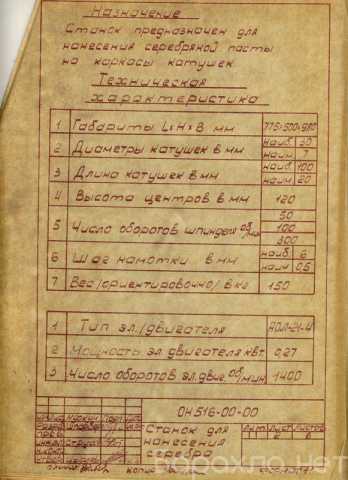 Назначение
Станок предназначен для
нанесения серебряной пасты
на каркасы катушек
Техническая
характеристика
1 Габариты L×H×B мм 775×500×980
2 Диаметры катушек в мм наиб. 30
наим. 7
3 Длина катушек в мм наиб. 100
наим. 20
4 Высота центров в мм 120
5 Число оборотов шпинделя об/мин 50
100
300
6 Шаг намотки в мм наиб. 6
наим. 0,5
7 Вес /ориентировочно/ в кг 150
1 Тип эл./двигателя АОЛ-21-4
2 Мощность эл двигателя квт. 0,27
3 Число оборотов эл.двиг. об/мин 1400
ОН516-00-00
Станок для
нанесения
серебра
Лит. Лист Листов
барахло.нет